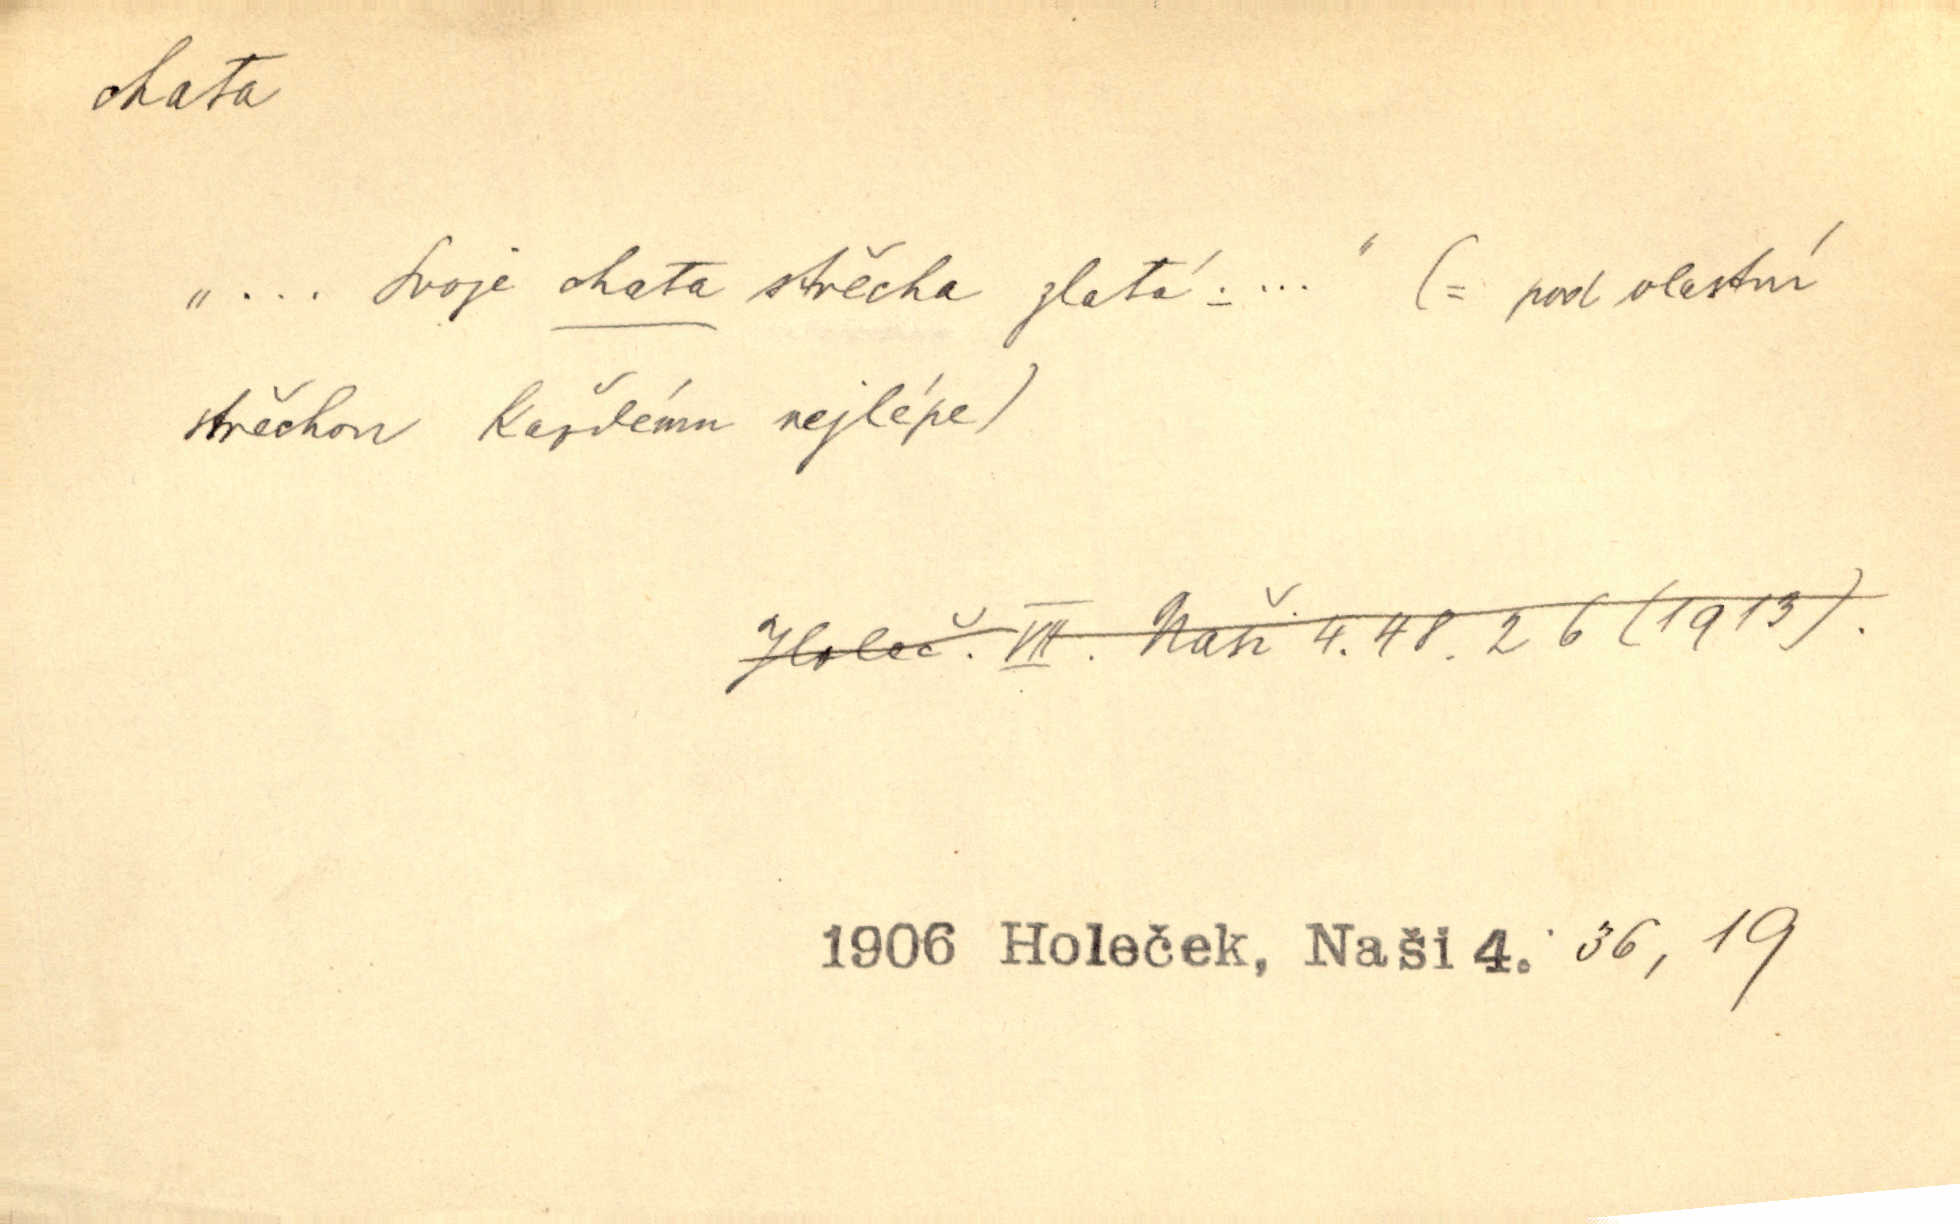 chata
„... Svoje chata střecha zlatá. ..." (= pod vlastní
střechou každému nejlépe)
Holeč. VII. Naši 4. 48. 26 (1913).
1906 Holeček, Naši 4. 36, 19